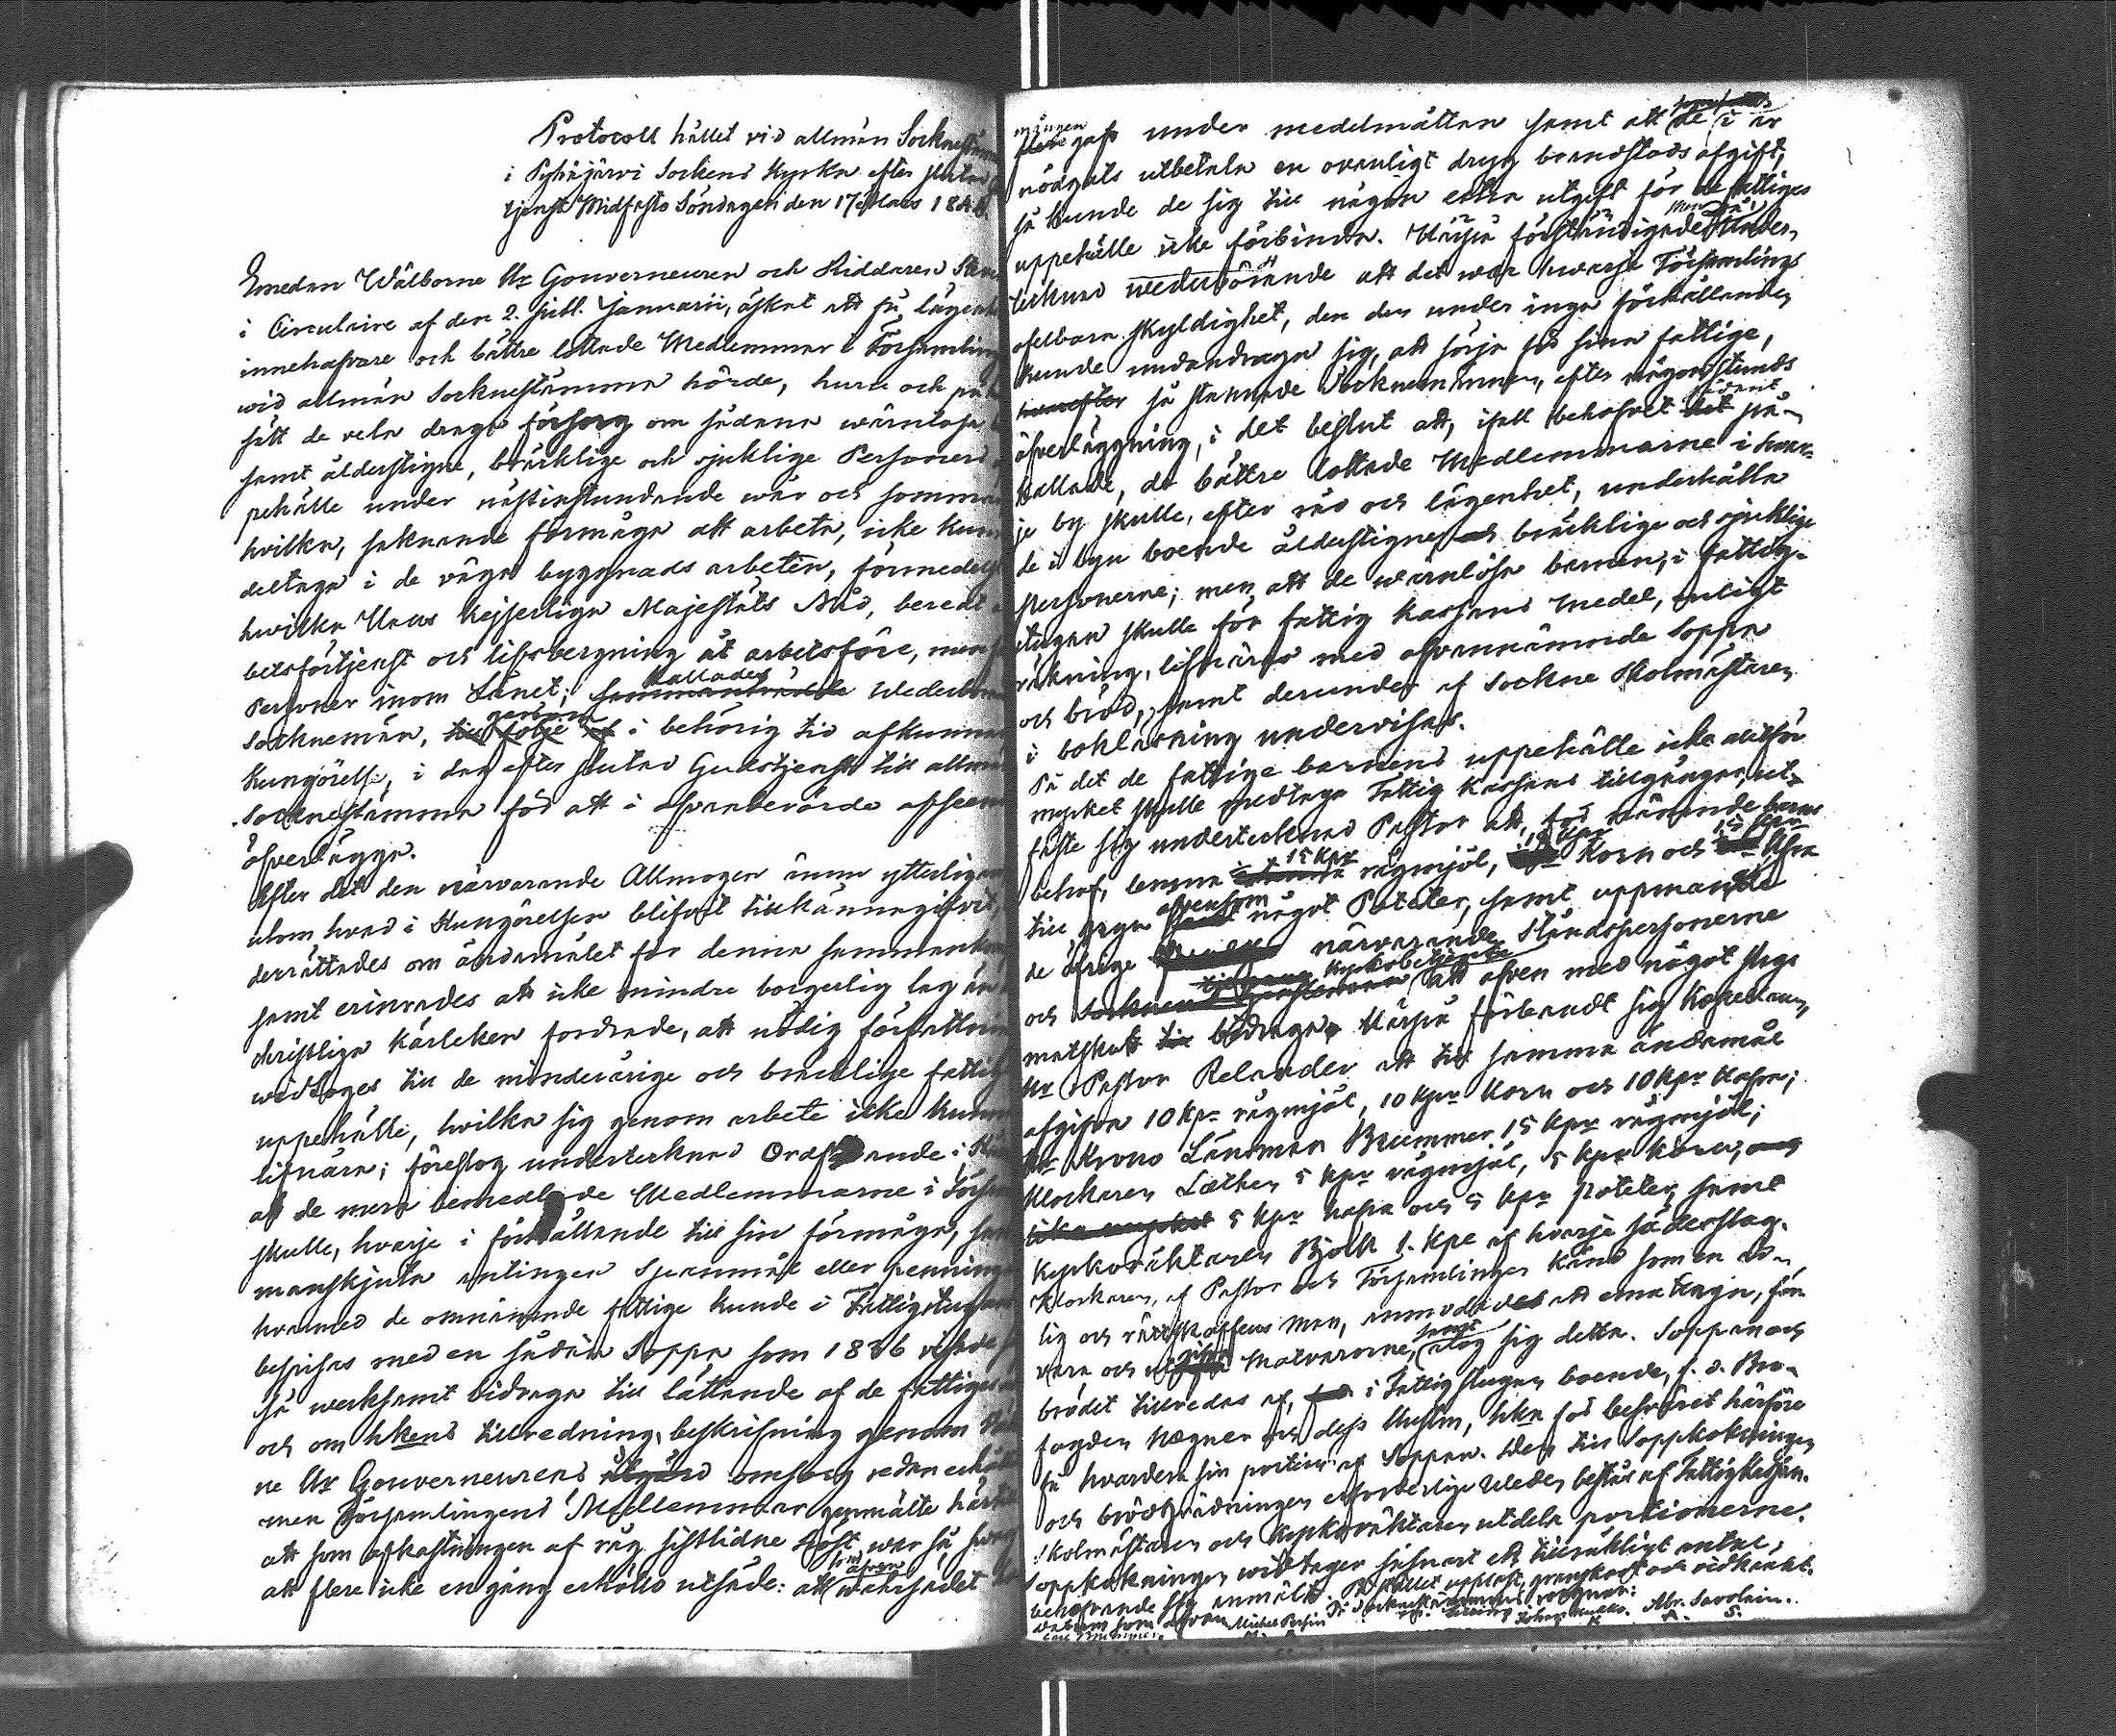 Protocoll hållet vid allmän Sockne
i Pyhäjärvi Sockens Kyrka efter slutad
tjenst Midfasto Söndagen den 17 Mars 184
Emedan Wälborne Hr Gouverneuren och Riddaren
i Circulaire af den 2. sistl. Januarii, äskat att få lägen
innehafvare och bättre lottade Medlemmar i Församling
wid allmän Socknestämma hörde, huru och på
sätt de vela draga försorg om sådana wärnlösa
samt ålderstigne, bräcklige och sjuklige Personers
pehälle under nästinstundande wår och somma
hvilka, saknande förmåga att arbeta, icke kun
deltaga i de vägabyggnads arbeten, förmedelst
hwilka Hans Kejserliga Majestäts Nåd, beredt
betsförtjenst och lifsbergning åt arbetsföre, men
Personer inom Länet; kallades Wederbör
Socknemän, genom i behörig tid afkunna
Kungörelse, i dag efter slutad Gudstjenst till allmän
Socknestämma för att i ofvanberörde afseende
öfverlägga.
Efter det den närvarande Allmogen ännu ytterligare
utom hvad i Kungörelsen blifvit tillkännagifvit,
derrättades om ändamålet för denna sammankom
samt erinrades att icke mindre borgerlig lag än
christliga kärleken fordrade, att nödig författning
widtoges till de minderårige och bräcklige fattig
uppehälle, hvilka sig genom arbete icke kunna
lifnära; föreslog undertecknad Ordförande i
att de mera bemedlade Medlemmarne i Försam
skulle, hvarje i förhållande till sin förmåga, sam
manskjuta antingen Spanmål eller penningar
hvarmed de omnämnde fattige kunde i Fattigstugan
bespisas med en sådan Soppa som 1836 visade
så werksamt bidraga till lättande af de fattiges
och om hkens tillredning, beskrifning genom
ne Hr Gouverneurens omsorg redan erhåll
men Församlingens Medlemmar genmälte här
att som afkastningen af råg sistlidne höst war så
att flere icke en gång erhållo utsäde: att som äfven
mången gafs under medelmåttan samt att de i år
nödgats utbetala en ovanligt dryg brandstods afgift,
så kunde de sig till någon extra utgift för de fattiges
uppehälle icke förbinda. Härpå förständigade Under
tecknad wederbörande att det war hwarje Församlings
ofelbara skyldighet, den den under inga förhållanden
kunde undandraga sig, att sörja för sina fattige,
så stannade Socknemännen, efter någon stunds
öfverläggning, i det beslut att, ifall behofvet sådant på-
kallade, de bättre lottade Medlemmarne i hvar-
je by skulle, efter råd och lägenhet, underhålla
de i byn boende ålderstigne, bräcklige och sjuklige
personerne; men att de wärnlösa barnen, i fattig-
stugan skulle för fattig Kassans Medel, enligt
räkning, lifnäras med ofvannämnde Soppa
och bröd, samt derunder af Sockne Skolmästaren
i bokläsning undervisas.
På det de fattige barnens uppehälle icke alltför
mycket skulle medtaga Fattig Kassans tillgångar, ut-
fäste sig undertecknad Pastor att, för nämnde barns
behof, lemna 15 kpr rågmjöl, Korn och
till gryn äfvensom något Potater, samt uppmanade
de öfrige närvarande Ståndspersonerne
och Kyrkobetjente att äfven med något slags
matskatt bidraga. Härpå förband sig Kapellanen
Hr Pastor Relander att till samma ändamål
afgifva 10 kpr rågmjöl, 10 kpr Korn och 10 kpr Hafra;
Hr Krono Länsman Brummer 15 kpr rågmjöl;
Klockaren Lathen 5 kpr rågmjöl, 5 kpr Korn,
5 kpr hafra och 5 kpr potater, samt
Kyrkoväktaren Björk 1. kpe af hvarje sädesslag.
Klockaren, af Pastor och Församlingen känd som en red-
lig och rättskaffens man, anmodades att emottaga, för-
vara och utgifva Matvarorne, samt åtog sig detta. Soppan och
brödet tillredas af, i Fattigstugan boende, f. d. Bro-
fogden Hægner och dess Hustru, hka för besväret härföre
få hvardera sin portion af Soppan. Den till Soppkokningen
och brödgräddningen erforderlige Weden bestås af Fattigkassan.
Skolmästaren och Kyrkoväktaren utdela portionerne.
Soppkokningen widtager såsnart ett tillräckligt antal
behöfvande sig anmält. uppläst, granskadt och widkändt.
Datum som ofvan Michel På Socknestämmans vägnar: Abr. Savolain.